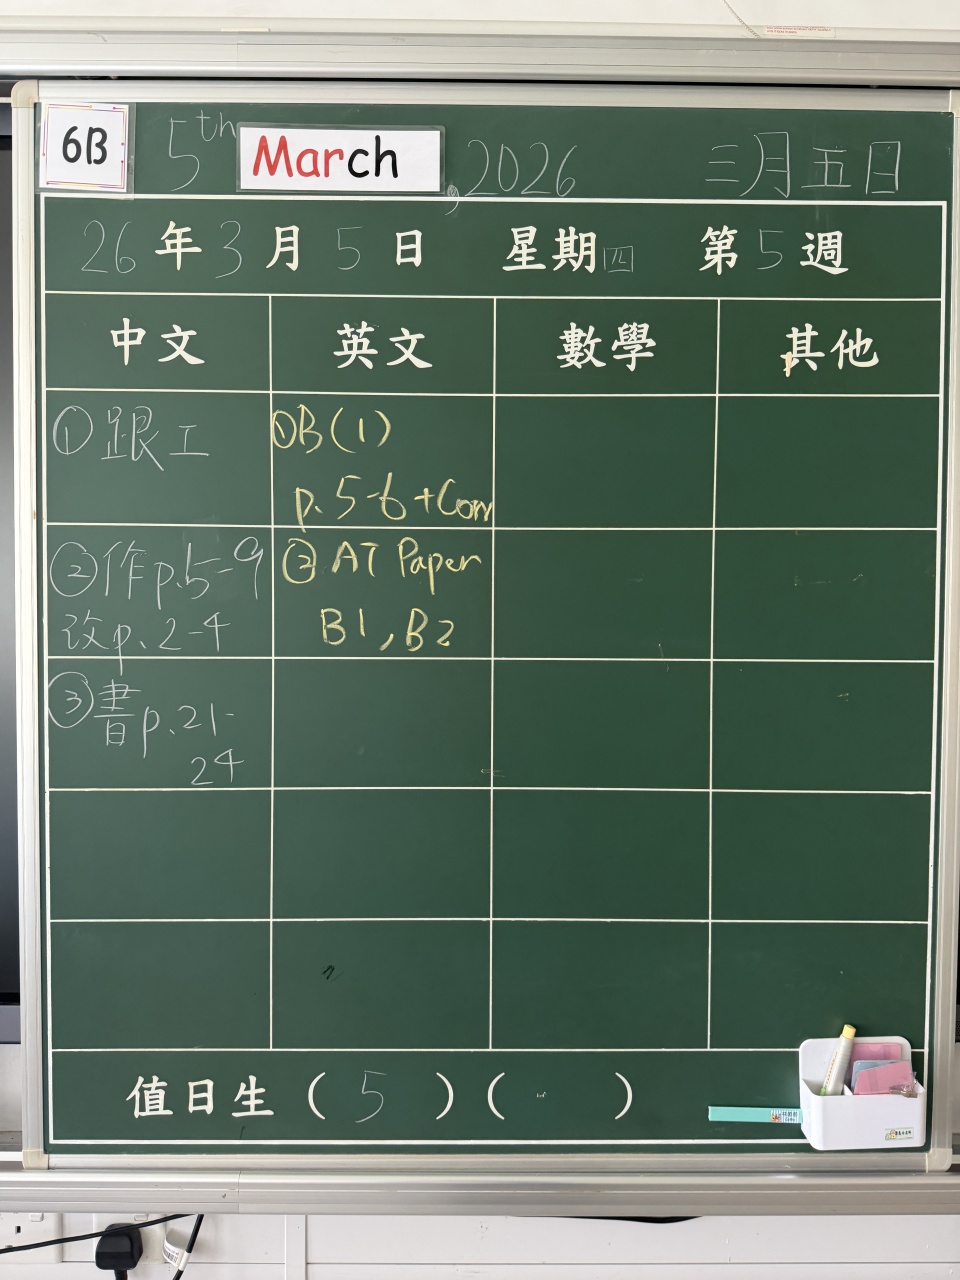 6B
5th March, 2026 三月五日
26年3月5日 星期四 第5週
中文 英文 數學 其他
①跟工
①B(1)
p.5-6+Corr
②作p.5-9
改p.2-4
②AT Paper
B1,B2
③書p.21-
24
值日生(5)( )